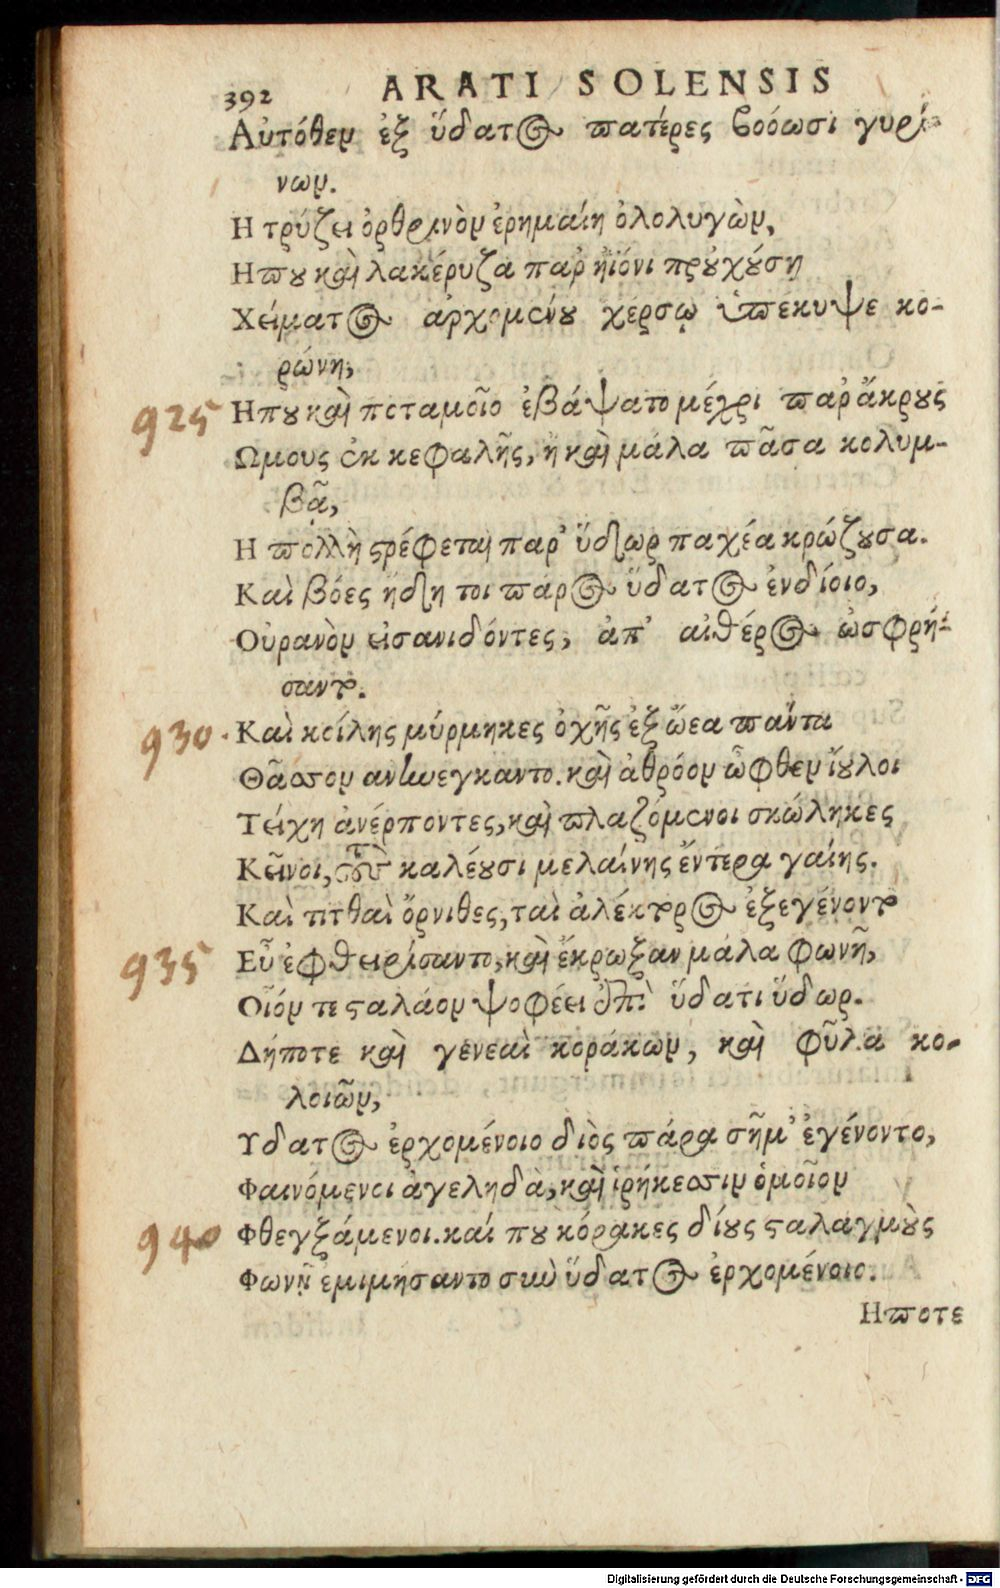 392 ARATI SOLENSIS
Αὐτόθεν ἐξ ὕδατος πατέρες βοόωσι γυρί-
νων.
Η τρύζει ὀρθρινὸν ἐρημαίη ὀλολυγὼν,
Ηπου καὶ λακέρυζα παρ' ἠϊόνι προυχούσῃ
Χείματος ἀρχομένου χέρσῳ ὑπέκυψε κο-
ρώνη,
925 Ηπου καὶ ποταμοῖο ἐβάψατο μέχρι παρ' ἄκρους
Ωμους ἐκ κεφαλῆς, ἢ καὶ μάλα πᾶσα κολυμ-
βᾷ,
Η πολλὴ στρέφεται παρ' ὕδωρ παχέα κρώζουσα.
Καὶ βόες ἤδη τοι πάρος ὕδατος ἐνδίοιο,
Οὐρανὸν εἰσανιδόντες, ἀπ' αἰθέρος ὠσφρή-
σαντο.
930 Καὶ κοίλης μύρμηκες ὀχῆς ἐξ ὤεα πάντα
Θᾶσσον ανηνεγκαντο. καὶ ἀθρόον ὦφθεν ἴουλοι
Τείχη ἀνέρποντες, καὶ πλαζόμενοι σκώληκες
Κεῖνοι, τοὺς καλέουσι μελαίνης ἔντερα γαίης.
Καὶ τιτθαὶ ὄρνιθες, ταὶ ἀλέκτορος ἐξεγένοντο
935 Εὖ ἐφθειρίσαντο, καὶ ἔκρωξαν μάλα φωνῇ,
Οἷόν τε σταλάον ψοφέει ἐπὶ ὕδατι ὕδωρ.
Δήποτε καὶ γενεαὶ κοράκων, καὶ φῦλα κο-
λοιῶν,
Υδατος ἐρχομένοιο διὸς πάρα σῆμ' ἐγένοντο,
Φαινόμενοι ἀγεληδὰ, καὶ ἰρήκεσσιν ὁμοῖον
940 Φθεγξάμενοι. καί που κόρακες δίους σταλαγμοὺς
Φωνῇ ἐμιμήσαντο σὺν ὕδατος ἐρχομένοιο.
Ηποτε
Digitalisierung gefördert durch die Deutsche Forschungsgemeinschaft - DFG